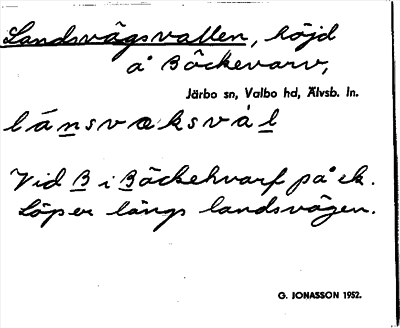 Landsvägsvallen, höjd
å Bäckevarv,
Järbo sn, Valbo hd, Älvsb. ln.
lánsvæksvàl
Vid B i Bäckehvarf på ek.
Löper längs landsvägen.
G. JONASSON 1952.